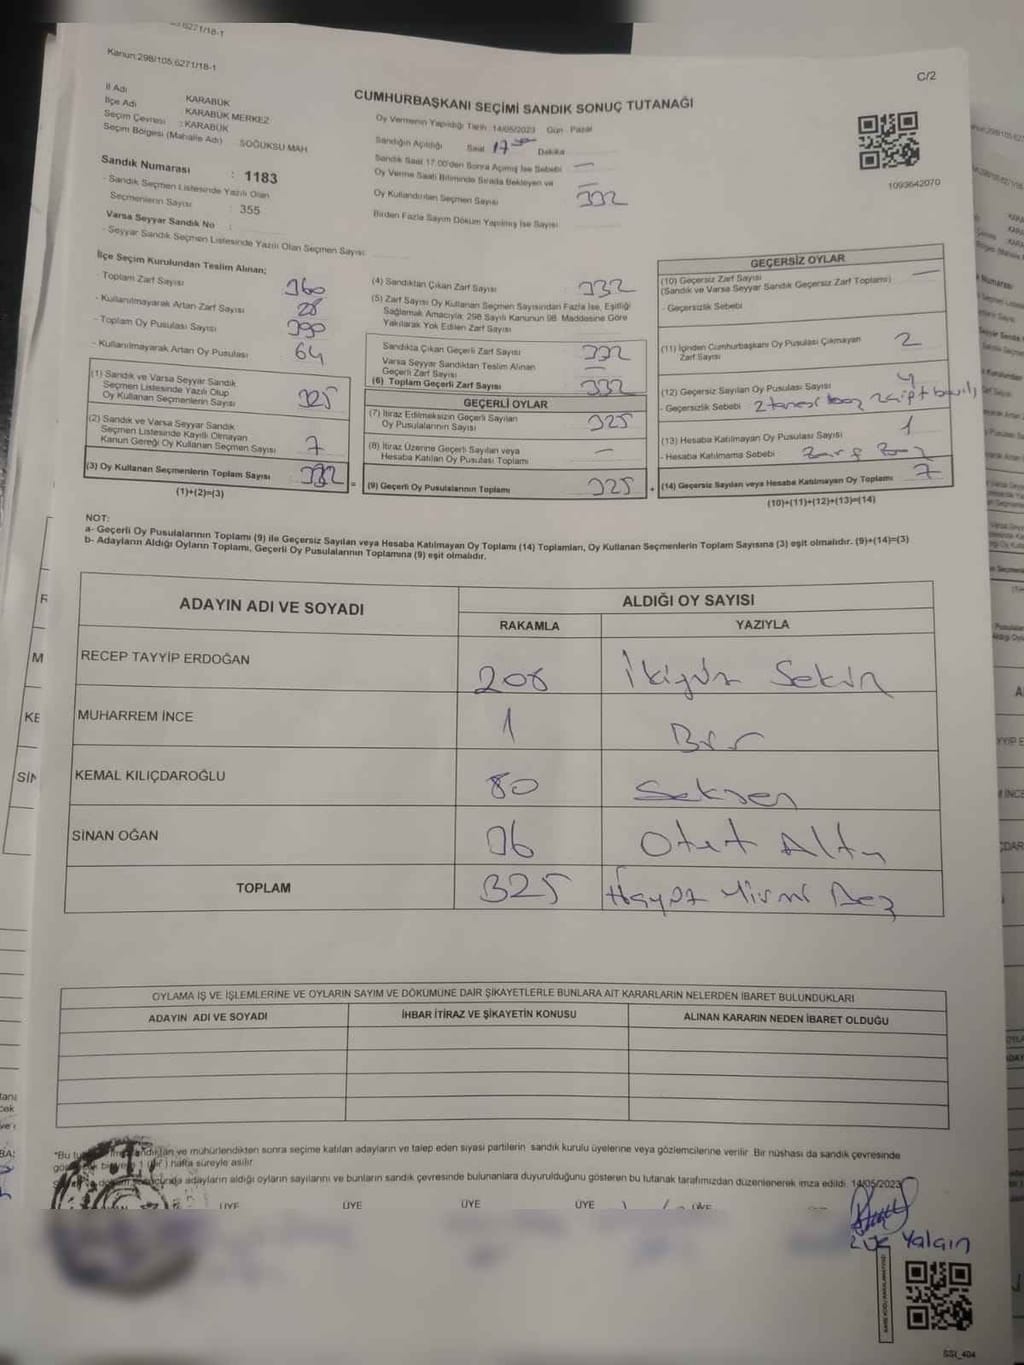 6271/18-1
Kanun:298/105,6271/18-1
C/2
İl Adı KARABÜK
İlçe Adı KARABÜK MERKEZ
Seçim Çevresi : KARABÜK
Seçim Bölgesi (Mahalle Adı) SOĞUKSU MAH.
Sandık Numarası : 1183
- Sandık Seçmen Listesinde Yazılı Olan
Seçmenlerin Sayısı : 355
Varsa Seyyar Sandık No :
- Seyyar Sandık Seçmen Listesinde Yazılı Olan Seçmen Sayısı
CUMHURBAŞKANI SEÇİMİ SANDIK SONUÇ TUTANAĞI
Oy Vermenin Yapıldığı Tarih :14/05/2023 Gün : Pazar
Sandığın Açıldığı Saat 17 Dakika
Sandık Saat 17.00'den Sonra Açılmış İse Sebebi —
Oy Verme Saati Bitiminde Sırada Bekleyen ve —
Oy Kullandırılan Seçmen Sayısı 332
Birden Fazla Sayım Döküm Yapılmış İse Sayısı
1093642070
İlçe Seçim Kurulundan Teslim Alınan;
- Toplam Zarf Sayısı 360
- Kullanılmayarak Artan Zarf Sayısı 28
- Toplam Oy Pusulası Sayısı 390
- Kullanılmayarak Artan Oy Pusulası 64
(1) Sandık ve Varsa Seyyar Sandık
Seçmen Listesinde Yazılı Olup
Oy Kullanan Seçmenlerin Sayısı 325
(2) Sandık ve Varsa Seyyar Sandık
Seçmen Listesinde Kayıtlı Olmayan
Kanun Gereği Oy Kullanan Seçmen Sayısı 7
(3) Oy Kullanan Seçmenlerin Toplam Sayısı 332 =
(1)+(2)=(3)
(4) Sandıktan Çıkan Zarf Sayısı 332
(5) Zarf Sayısı Oy Kullanan Seçmen Sayısından Fazla İse, Eşitliği
Sağlamak Amacıyla; 298 Sayılı Kanunun 98. Maddesine Göre
Yakılarak Yok Edilen Zarf Sayısı
Sandıkta Çıkan Geçerli Zarf Sayısı 332
Varsa Seyyar Sandıktan Teslim Alınan
Geçerli Zarf Sayısı —
(6) Toplam Geçerli Zarf Sayısı 332
GEÇERLİ OYLAR
(7) İtiraz Edilmeksizin Geçerli Sayılan
Oy Pusulalarının Sayısı 325
(8) İtiraz Üzerine Geçerli Sayılan veya
Hesaba Katılan Oy Pusulası Toplamı —
(9) Geçerli Oy Pusulalarının Toplamı 325 +
GEÇERSİZ OYLAR
(10) Geçersiz Zarf Sayısı —
(Sandık ve Varsa Seyyar Sandık Geçersiz Zarf Toplamı)
- Geçersizlik Sebebi
(11) İçinden Cumhurbaşkanı Oy Pusulası Çıkmayan
Zarf Sayısı 2
(12) Geçersiz Sayılan Oy Pusulası Sayısı 4
- Geçersizlik Sebebi 2 tanesi boş
(13) Hesaba Katılmayan Oy Pusulası Sayısı 1
- Hesaba Katılmama Sebebi Zarf Boş
(14) Geçersiz Sayılan veya Hesaba Katılmayan Oy Toplamı 7
(10)+(11)+(12)+(13)=(14)
NOT:
a- Geçerli Oy Pusulalarının Toplamı (9) ile Geçersiz Sayılan veya Hesaba Katılmayan Oy Toplamı (14) Toplamları, Oy Kullanan Seçmenlerin Toplam Sayısına (3) eşit olmalıdır. (9)+(14)=(3)
b- Adayların Aldığı Oyların Toplamı, Geçerli Oy Pusulalarının Toplamına (9) eşit olmalıdır.
ADAYIN ADI VE SOYADI
ALDIĞI OY SAYISI
RAKAMLA YAZIYLA
RECEP TAYYİP ERDOĞAN 208 İkiyüz Sekiz
MUHARREM İNCE 1 Bir
KEMAL KILIÇDAROĞLU 80 Seksen
SİNAN OĞAN 36 Otuz Altı
TOPLAM 325 Üçyüz Yirmi Beş
OYLAMA İŞ VE İŞLEMLERİNE VE OYLARIN SAYIM VE DÖKÜMÜNE DAİR ŞİKAYETLERLE BUNLARA AİT KARARLARIN NELERDEN İBARET BULUNDUKLARI
ADAYIN ADI VE SOYADI İHBAR İTİRAZ VE ŞİKAYETİN KONUSU ALINAN KARARIN NEDEN İBARET OLDUĞU
ve mühürlendikten sonra seçime katılan adayların ve talep eden siyasi partilerin sandık kurulu üyelerine veya gözlemcilerine verilir. Bir nüshası da sandık çevresinde
hafta süreyle asılır.
adayların aldığı oyların sayılarını ve bunların sandık çevresinde bulunanlara duyurulduğunu gösteren bu tutanak tarafımızdan düzenlenerek imza edildi. 14/05/2023
ÜYE ÜYE ÜYE ÜYE ÜYE
Yalçın
SSI_404